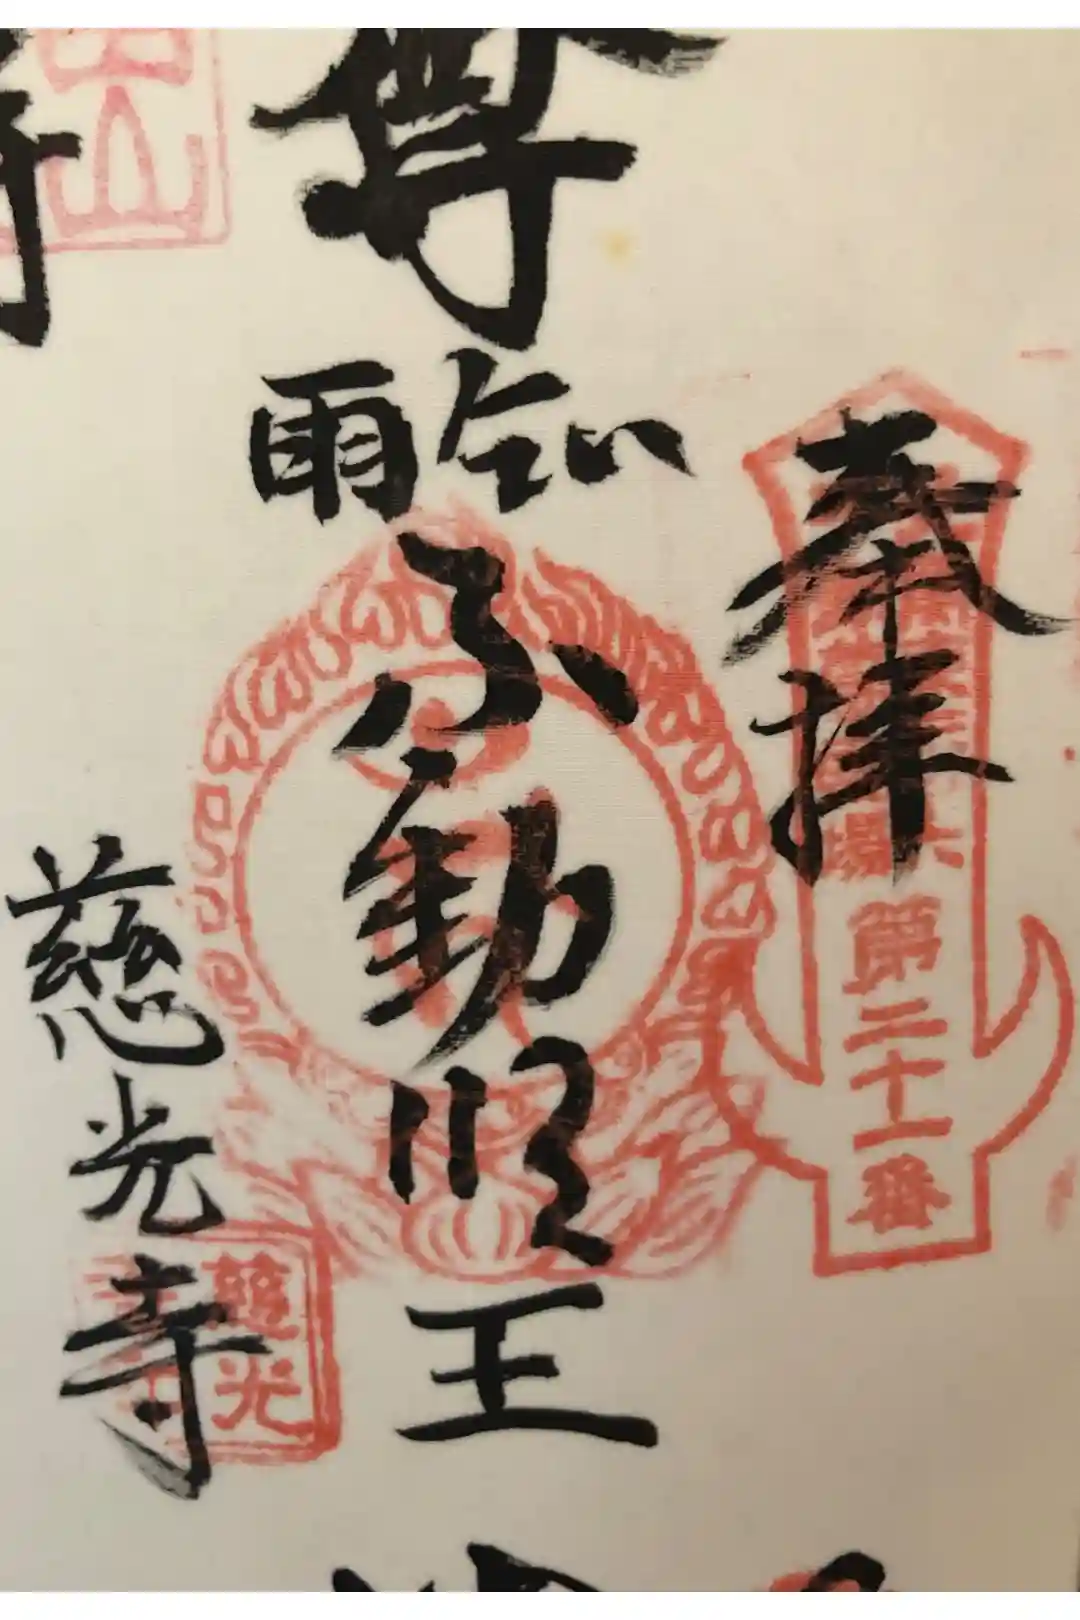 奉拝
場
第二十一番
尊
雨乞い
不動明王
慈光寺
慈光
寺
山